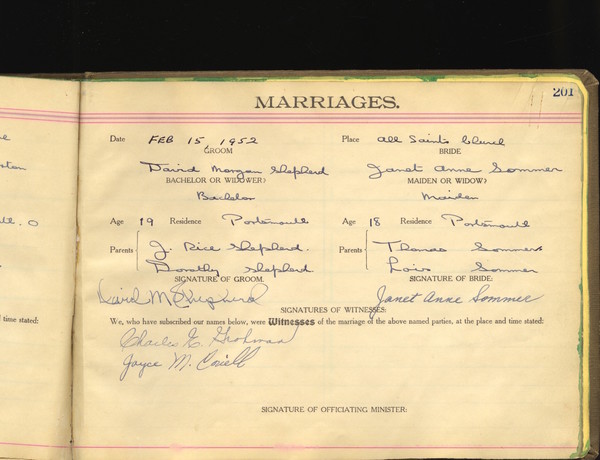 201
MARRIAGES.
Date FEB 15, 1952 Place All Saints Church
GROOM BRIDE
David Morgan Shepherd Janet Anne Sommer
BACHELOR OR WIDOWER? MAIDEN OR WIDOW?
Bachelor Maiden
Age 19 Residence Portsmouth Age 18 Residence Portsmouth
Parents J. Rice Shepherd. Parents Thomas Sommer
Dorothy Shepherd Lois Sommer
SIGNATURE OF GROOM. SIGNATURE OF BRIDE:
David M Shepherd Janet Anne Sommer
SIGNATURES OF WITNESSES:
d time stated: We, who have subscribed our names below, were Witnesses of the marriage of the above named parties, at the place and time stated:
Charles E.
Joyce M.
SIGNATURE OF OFFICIATING MINISTER: